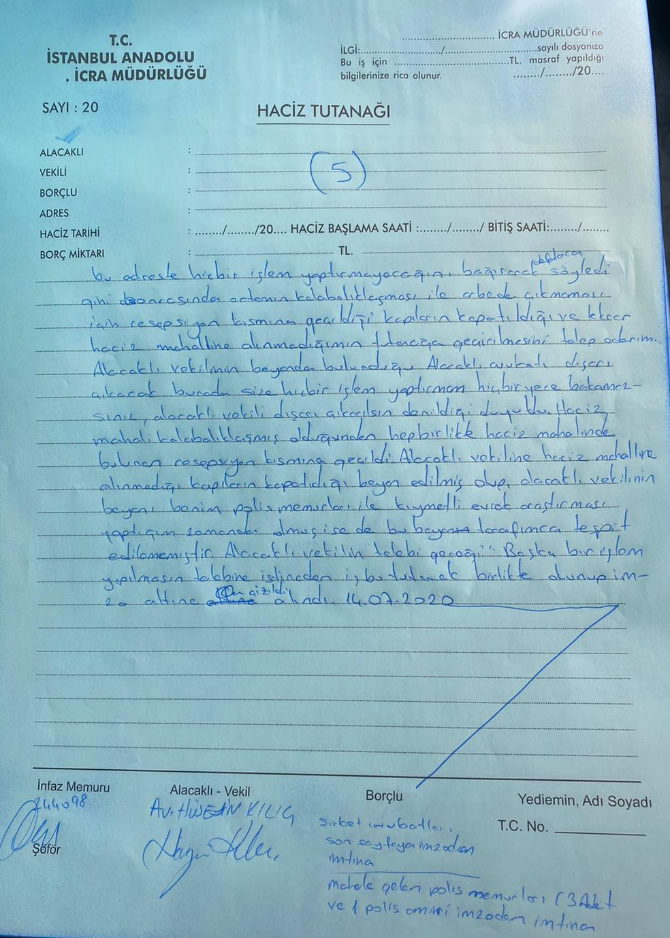 T.C.
İSTANBUL ANADOLU
. İCRA MÜDÜRLÜĞÜ
.................... İCRA MÜDÜRLÜĞÜ'ne
İLGİ:................/................sayılı dosyanıza
Bu iş için ................TL. masraf yapıldığı
bilgilerinize rica olunur. ....../....../20....
SAYI : 20
HACİZ TUTANAĞI
ALACAKLI :
VEKİLİ : (5)
BORÇLU :
ADRES :
HACİZ TARİHİ : ......../......../20.... HACİZ BAŞLAMA SAATİ :......../......../ BİTİŞ SAATİ:......../........
BORÇ MİKTARI : TL.
bu adreste hiçbir işlem yaptırmayacağını bağırarak söyledi
ğini sonrasında ortamın kalabalıklaşması ile arbede çıkmaması
için resepsiyon kısmına geçildiği kapıların kapatıldığı ve tekrar
haciz mahalline alınmadığımın tutanağa geçirilmesini talep ederim.
Alacaklı vekilinin beyanda bulunduğu Alacaklı avukatı dışarı
çıkacak burada size hiçbir işlem yaptırmam hiçbir yere bakamaz-
sınız, alacaklı vekili dışarı çıkarılsın denildiği duyuldu. Haciz
mahali kalabalıklaşmış olduğundan hep birlikte haciz mahalinde
bulunan resepsiyon kısmına geçildi. Alacaklı vekiline haciz mahalline
alınmadığı kapıların kapatıldığı beyan edilmiş olup, alacaklı vekilinin
beyanı benim polis memurları ile kıymetli evrak araştırması
yaptığım zamanda olmuş ise de bu beyan tarafımca tespit
edilememiştir. Alacaklı vekilin talebi gereği Başka bir işlem
yapılmasın talebine istineden iş bu tutanak birlikte okunup im-
za altına çizildi alındı. 14.07.2020
İnfaz Memuru
244098
Şoför
Alacaklı - Vekil
Av. HÜSEYİN KILIÇ
Borçlu
Şirket avukatları,
son sayfayı imzadan
imtina
mahale gelen polis memurları (3 Adet
ve 1 polis amiri imzadan imtina
Yediemin, Adı Soyadı
T.C. No.